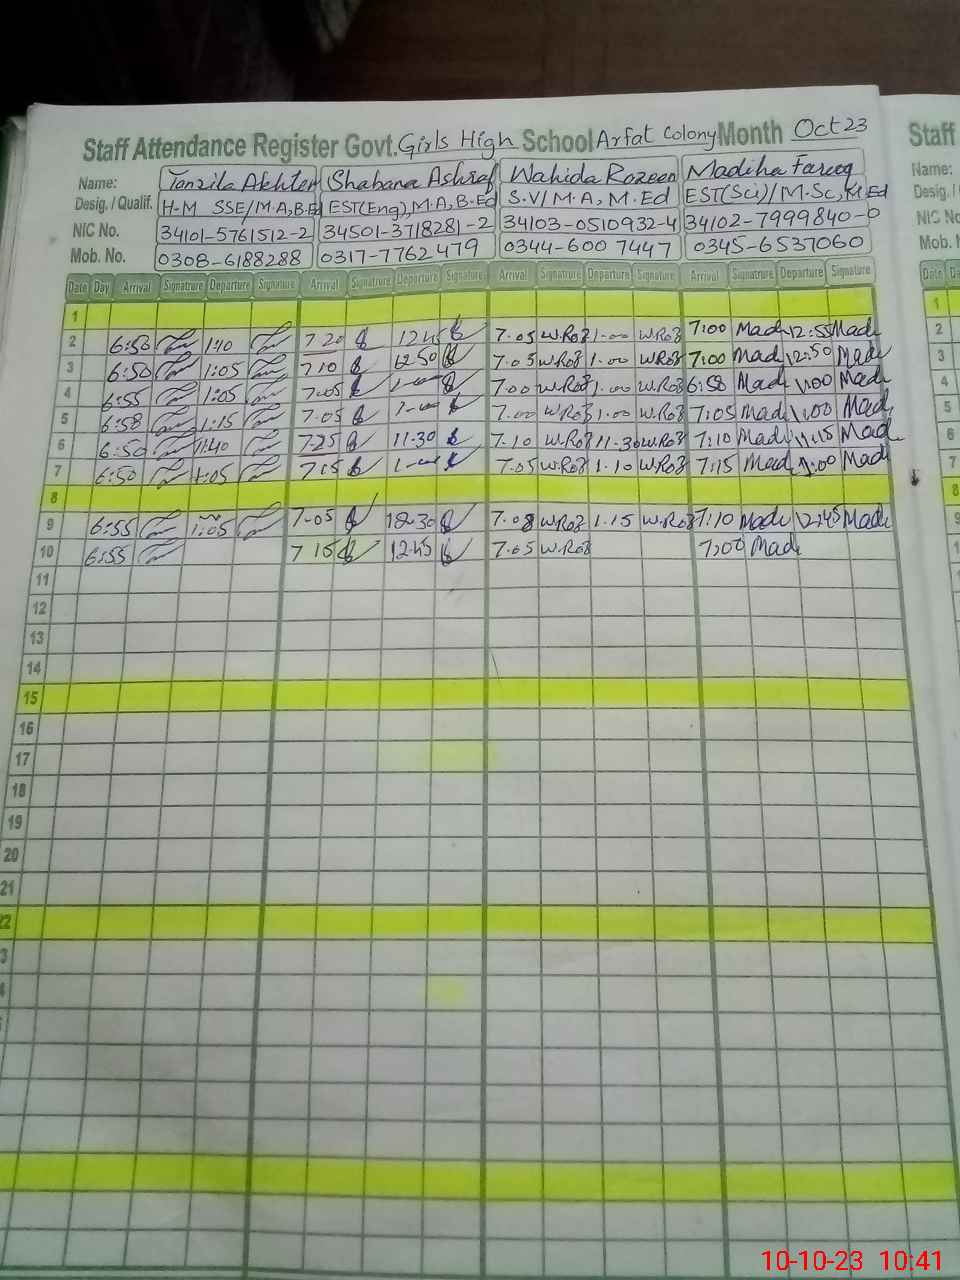 Staff Attendance Register Govt. Girls High School Arfat Colony Month Oct 23
Staff
Name: Tanzila Akhter Shabana Ashraf Wahida Rozeen Madiha Farooq
Name:
Desig. / Qualif. H-M SSE/M.A, B.Ed EST(Eng), M.A, B.Ed S.V/M.A, M.Ed EST(Sci)/M.Sc, M.Ed
Desig. /
NIC No. 34101-5761512-2 34501-3718281-2 34103-0510932-4 34102-7999840-0
NIC No
Mob. No. 0308-6188288 0317-7762479 0344-600 7447 0345-6537060
Mob. N
Date Day Arrival Signatrure Departure Signatrure Arrival Signatrure Departure Signatrure Arrival Signatrure Departure Signatrure Arrival Signatrure Departure Signatrure
Date Day
1
1
2 6:50 1:10 7 20 12 45 7.05 W.Roz 1.00 W.Roz 7:00 Mad 12:55 Mad
2
3 6:50 1:05 7 10 12.50 7.05 W.Roz 1.00 W.Roz 7:00 Mad 12:50 Mad
3
4 6:55 1:05 7.05 7.00 W.Roz 1.00 W.Roz 6:58 Mad 1:00 Mad
4
5 6:58 1:15 7.05 7.00 W.Roz 1.00 W.Roz 7:05 Mad 1:00 Mad
5
6 6:50 11:40 7.25 11.30 7.10 W.Roz 11.30 W.Roz 7:10 Mad 11:15 Mad
6
7 6:50 1:05 7.15 7.05 W.Roz 1.10 W.Roz 7:15 Mad 1:00 Mad
7
8
8
9 6:55 1:05 7.05 12.30 7.08 W.Roz 1.15 W.Roz 7:10 Mad 12:45 Mad
9
10 6:55 7 15 12.45 7.05 W.Roz 7:00 Mad
11
12
13
14
15
16
17
18
19
20
21
22
10-10-23 10:41